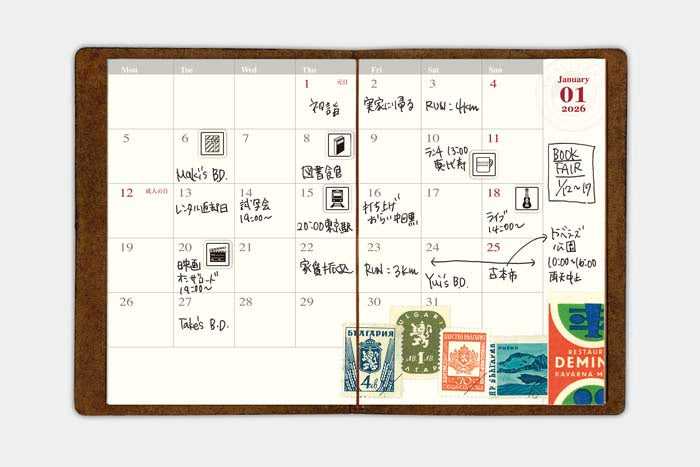 Mon Tue Wed Thu Fri Sat Sun
January
01
2026
1 元日
初詣
2
実家に帰る
3
RUN = 4km
4
5
6
Maki's BD.
7
8
図書館
9
10
ランチ 13:00
恵比寿
11
BOOK
FAIR
1/12〜19
12 成人の日
13
レンタル返却日
14
試写会
19:00〜
15
20:00東京駅
16
打ち上げ
中目黒
17
18
ライブ
14:00〜
19
20
映画
19:00〜
21
22
家賃振込
23
RUN = 3km
24
Yui's BD.
25
古本市
公園
10:00〜16:00
雨天中止
26
27
Take's B.D.
28
29
30
31
БЪЛГАРИЯ
4 ЛВ
1
30
RESTAUR
DEMIN
KAVARNA M